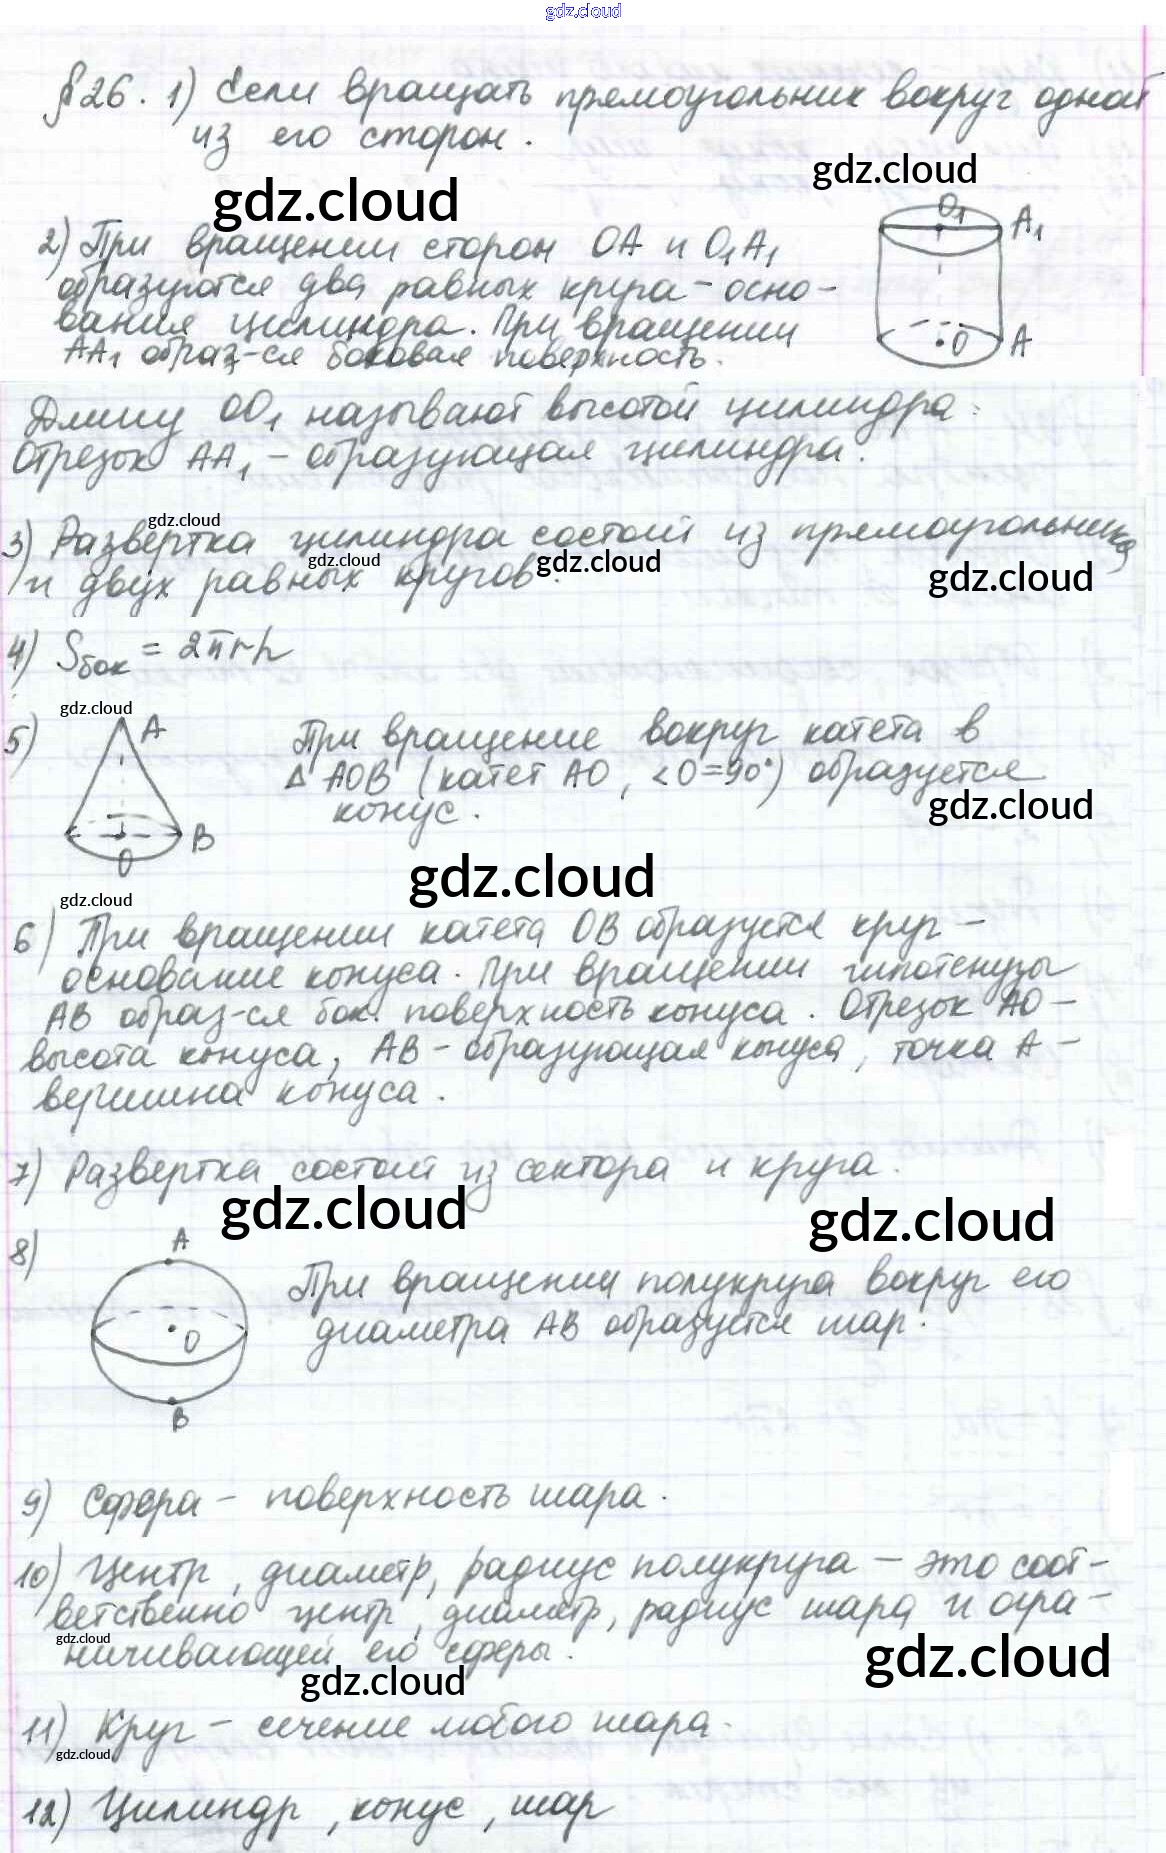 gdz.cloud
§26. 1) Если вращать прямоугольник вокруг одной
из его сторон.
gdz.cloud
gdz.cloud
2) При вращении сторон OA и O₁A₁
образуются два равных круга - осно-
вания цилиндра. При вращении
AA₁ образ-ся боковая поверхность.
O₁ A₁
O A
Длину OO₁ называют высотой цилиндра.
Отрезок AA₁ - образующая цилиндра.
gdz.cloud
3) Развертка цилиндра состоит из прямоугольника
и двух равных кругов.
gdz.cloud
gdz.cloud
gdz.cloud
4) Sбок = 2πrh
gdz.cloud
5)
A
B
O
При вращение вокруг катета в
Δ AOB (катет AO, <O=90°) образуется
конус.
gdz.cloud
gdz.cloud
gdz.cloud
6) При вращении катета OB образуется круг -
основание конуса. При вращении гипотенузы
AB образ-ся бок. поверхность конуса. Отрезок AO -
высота конуса, AB - образующая конуса, точка A -
вершина конуса.
7) Развертка состоит из сектора и круга.
gdz.cloud
gdz.cloud
8)
A
O
B
При вращении полукруга вокруг его
диаметра AB образуется шар.
9) Сфера - поверхность шара.
10) Центр, диаметр, радиус полукруга - это соот-
ветственно центр, диаметр, радиус шара и огра-
ничивающей его сферы.
gdz.cloud
gdz.cloud
gdz.cloud
11) Круг - сечение любого шара.
gdz.cloud
12) Цилиндр, конус, шар